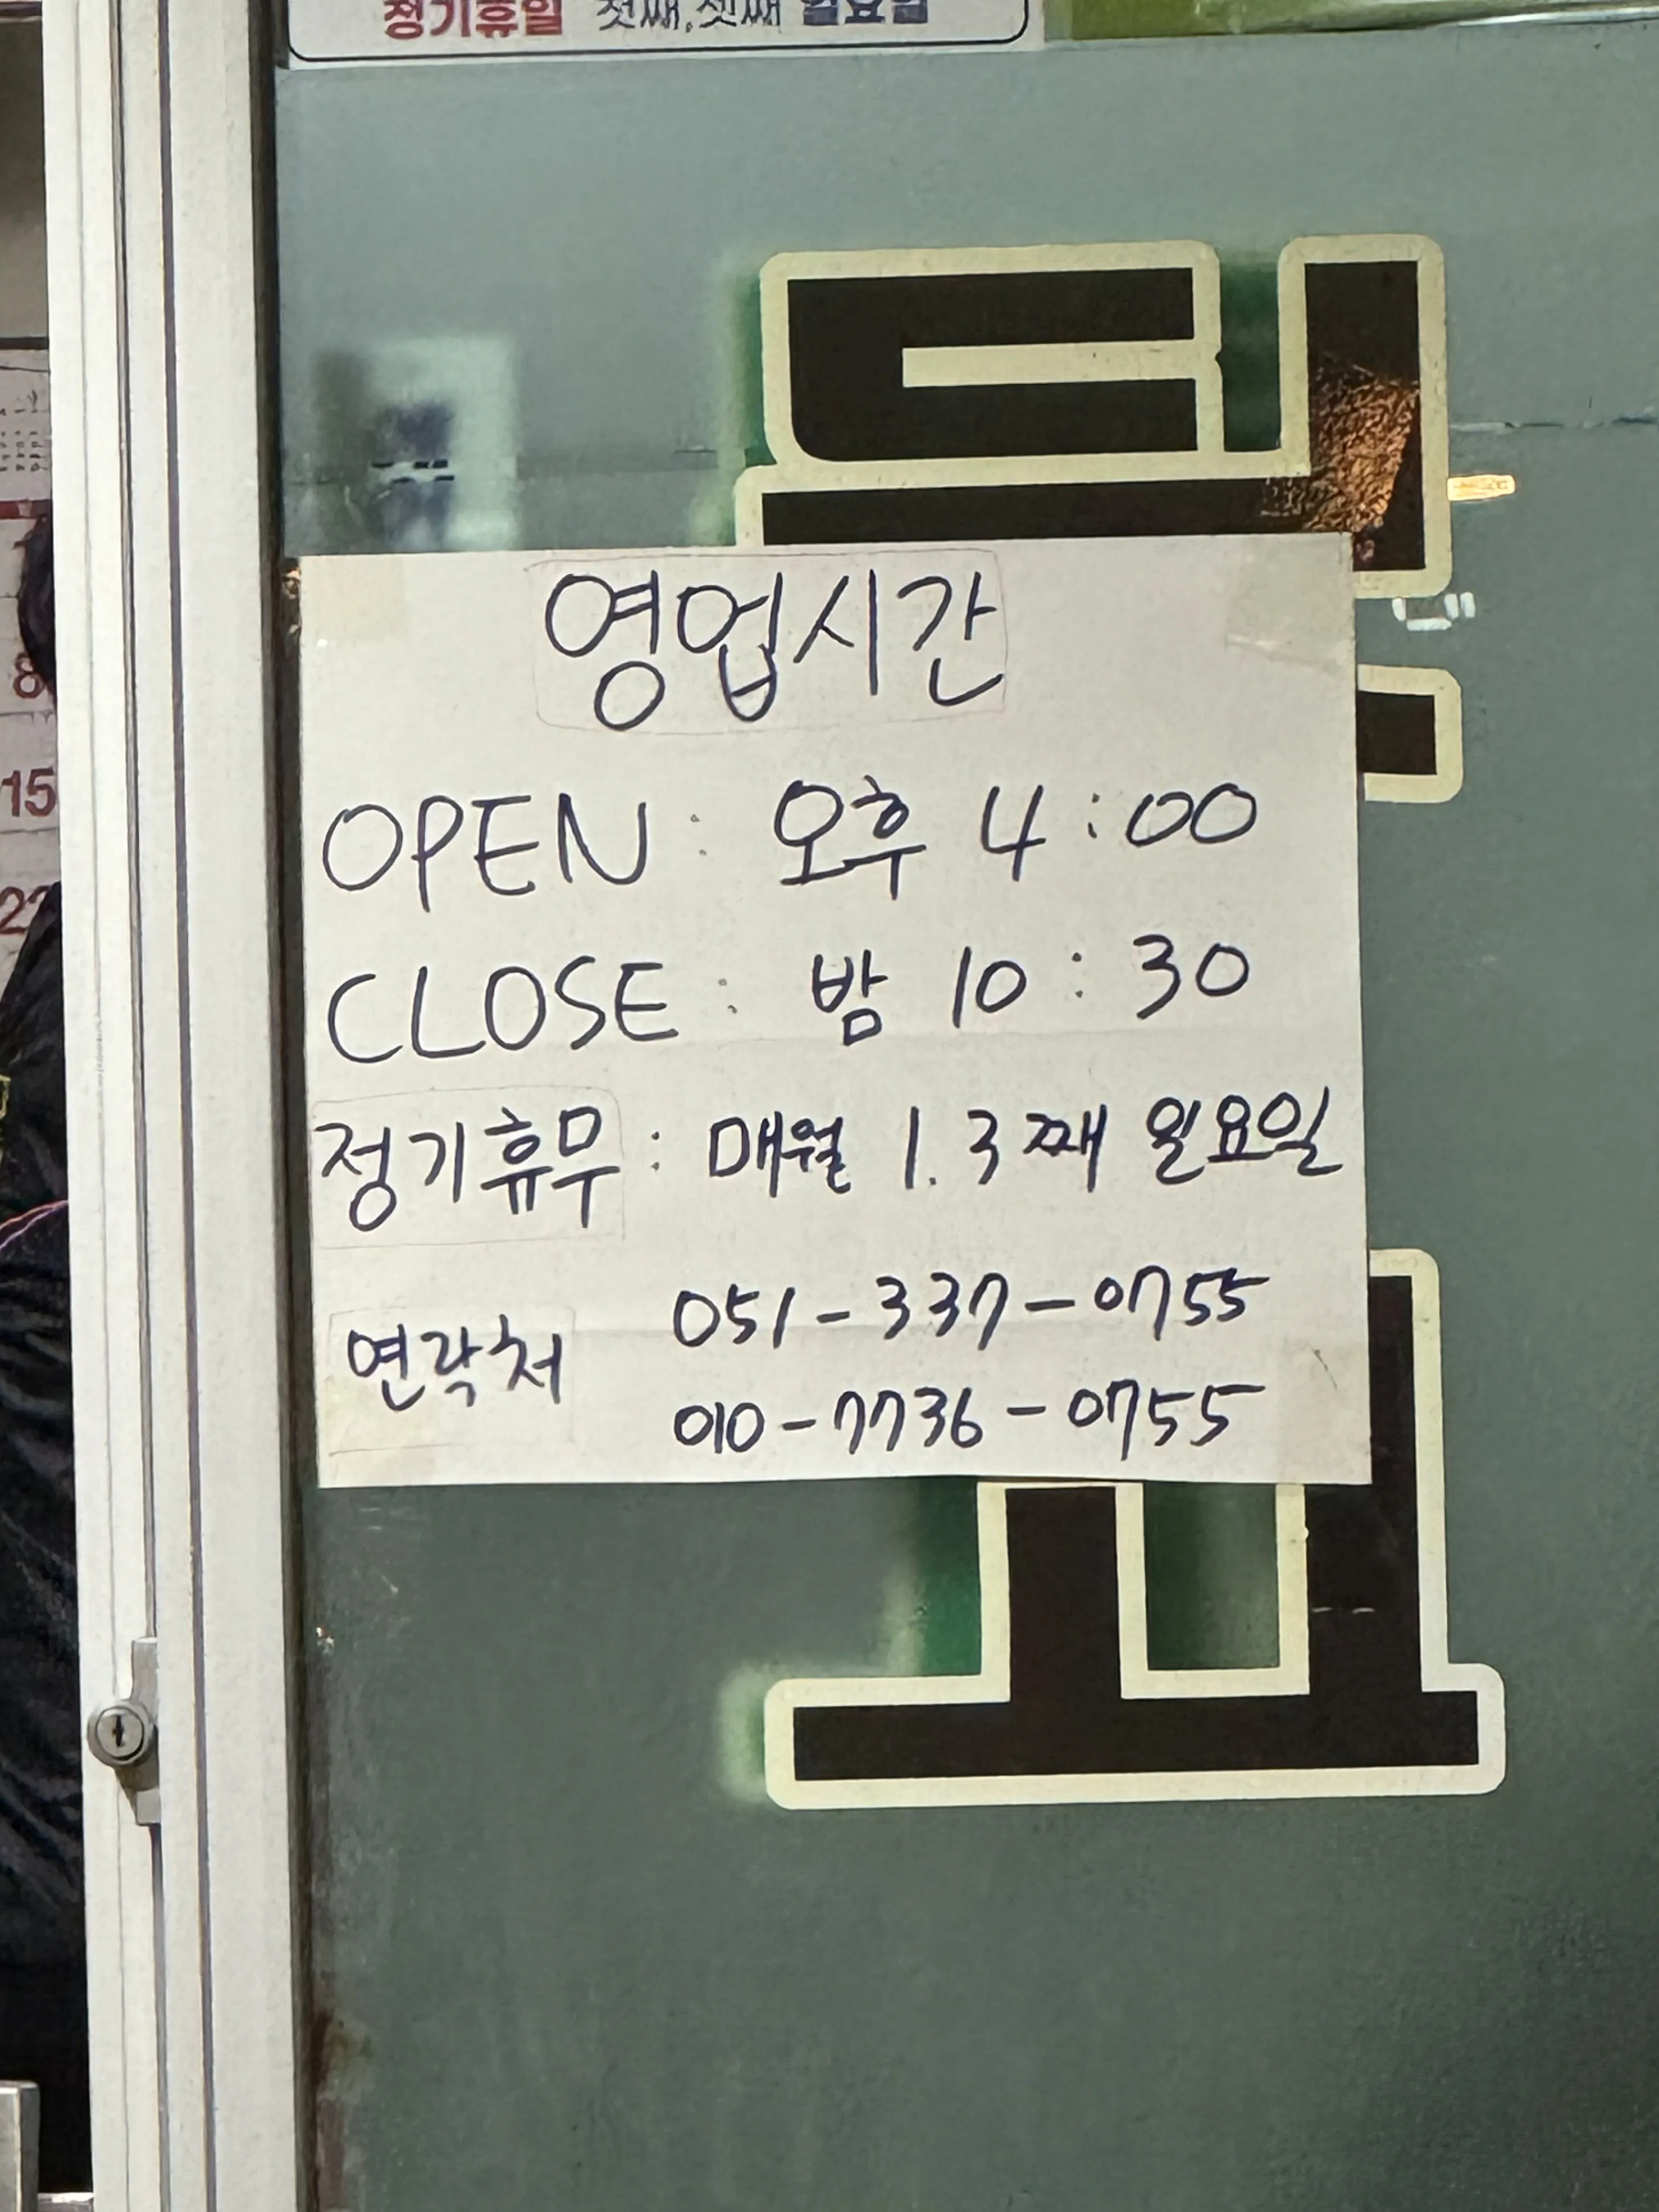 정기휴일 첫째,셋째 일요일
영업시간
OPEN : 오후 4:00
CLOSE : 밤 10:30
정기휴무 : 매월 1.3째 일요일
연락처 051-337-0755
010-7736-0755
8
15
22